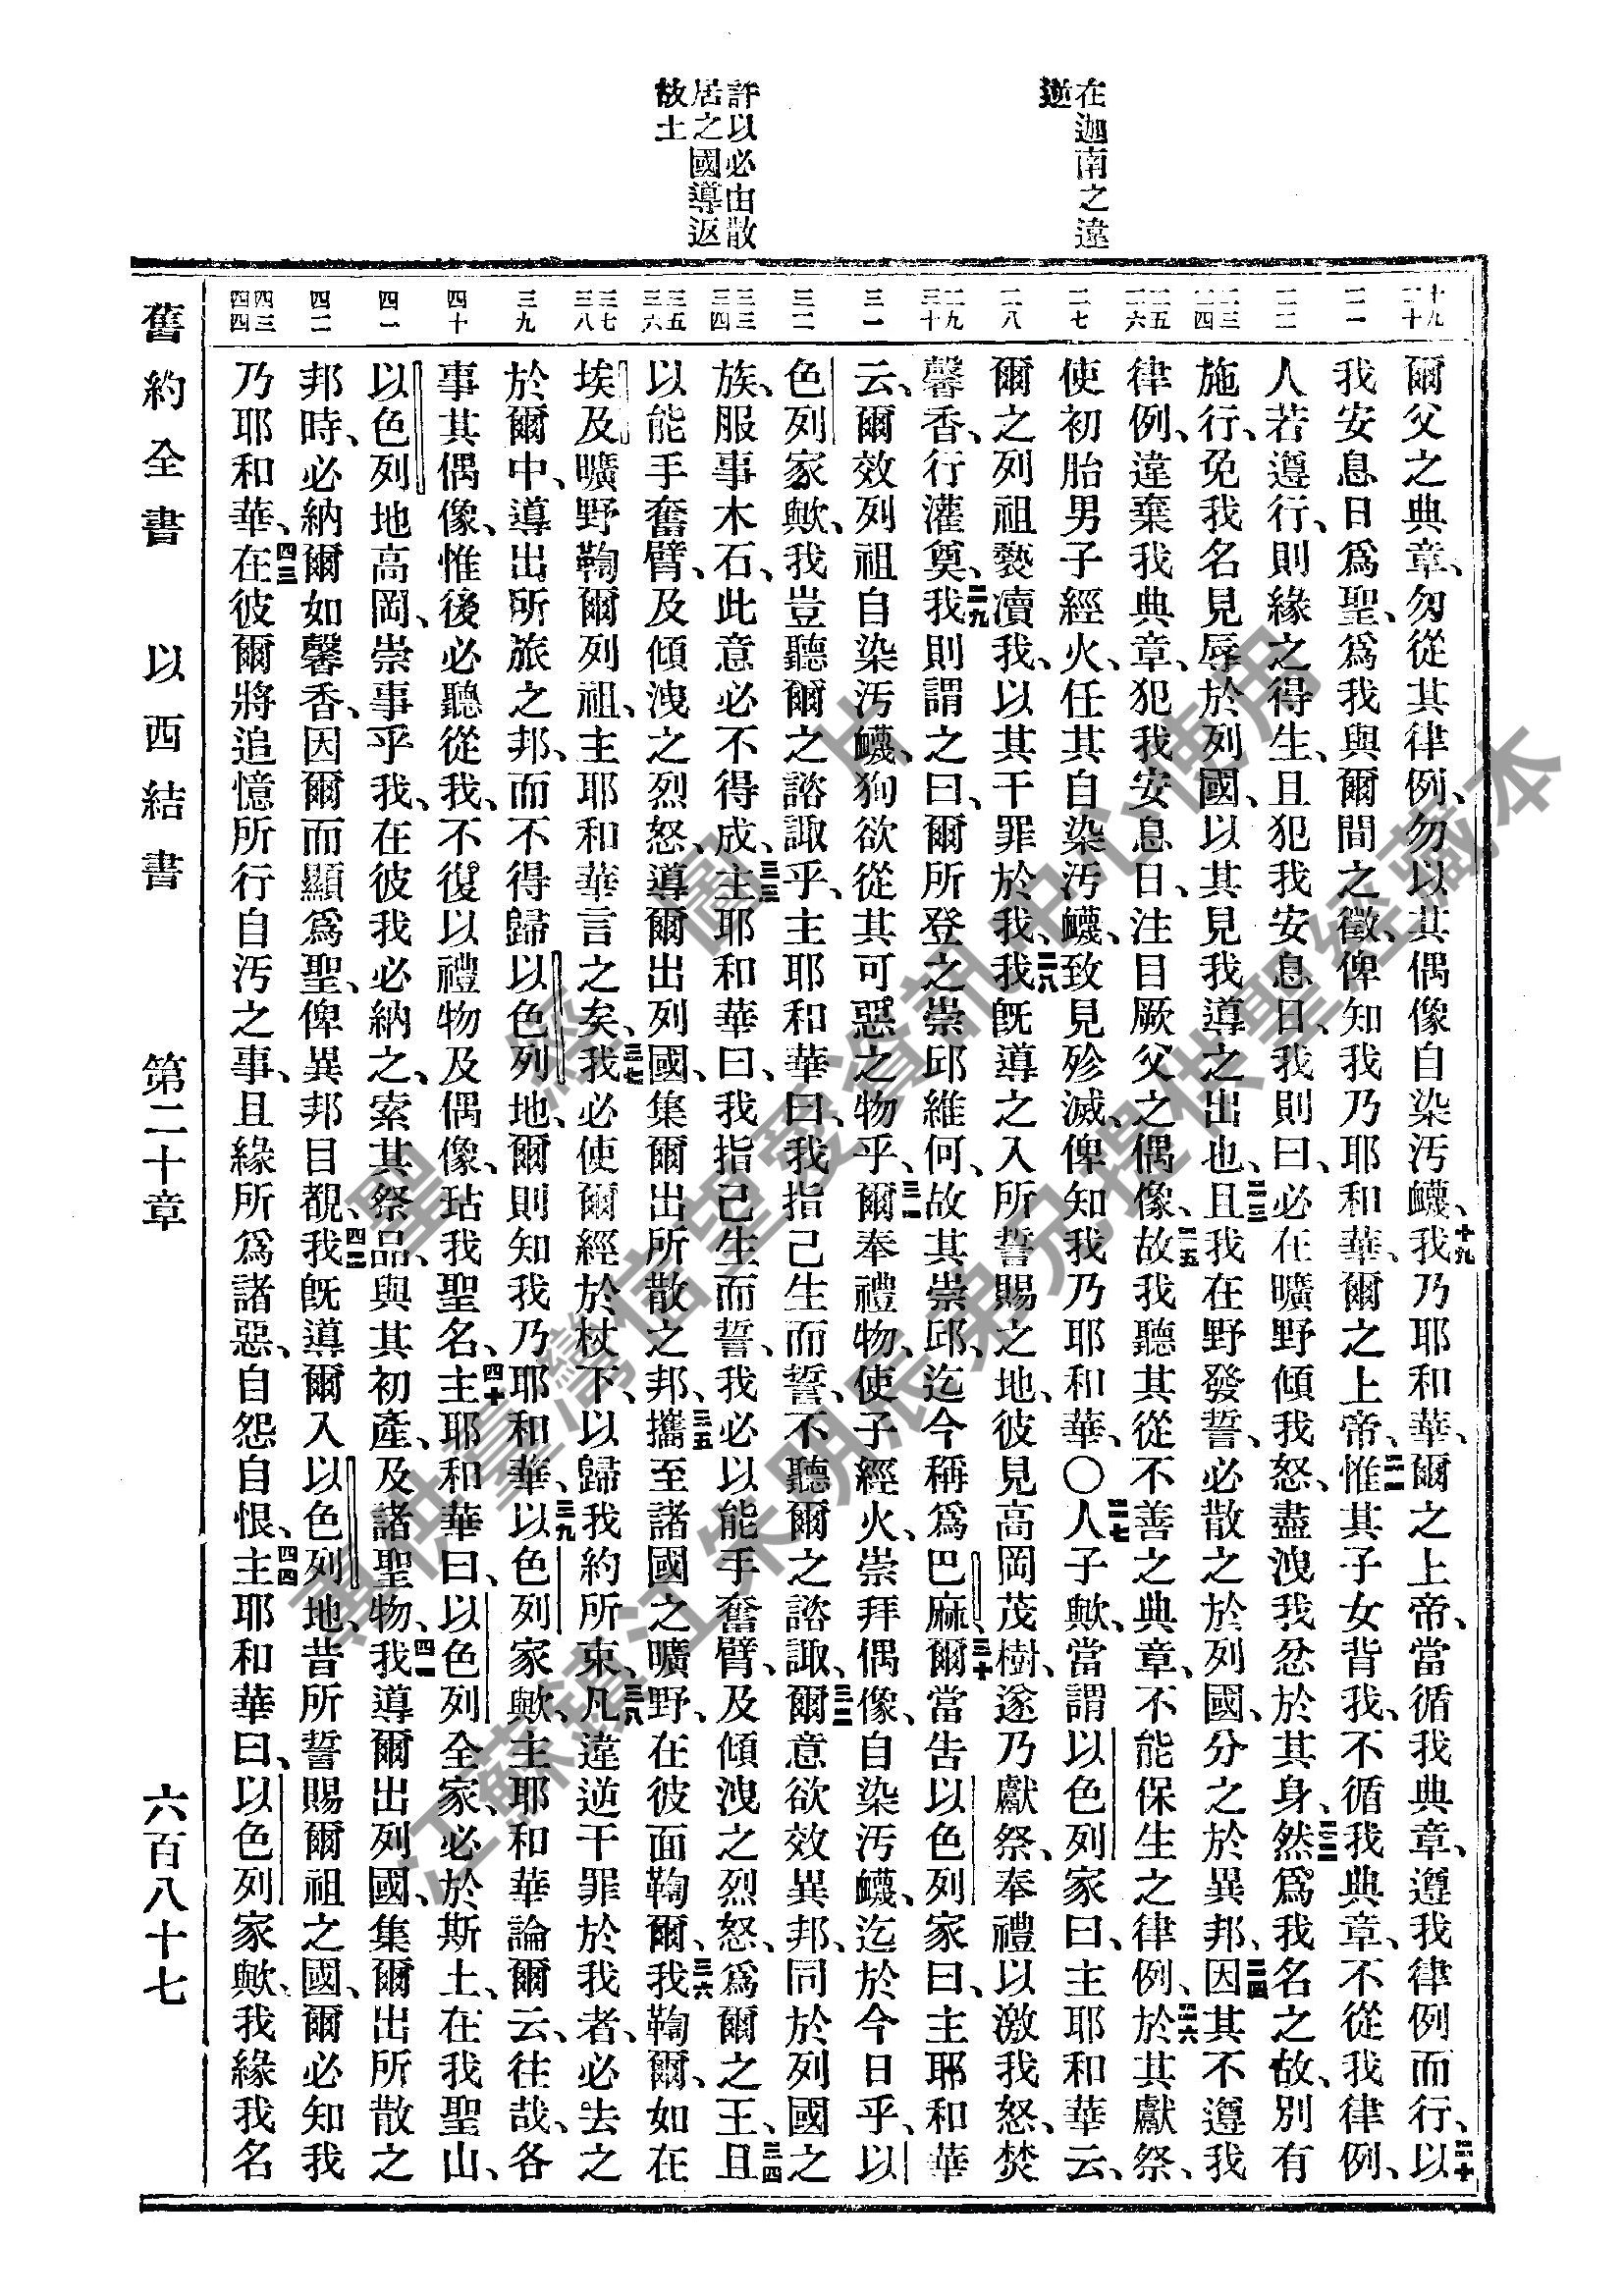 在迦南之違
逆
許以必由散
居之國導返
故土
十九
二十
二一
二二
二三
二四
二五
二六
二七
二八
二九
三十
三一
三二
三三
三四
三五
三六
三七
三八
三九
四十
四一
四二
四三
四四
爾父之典章、勿從其律例、勿以其偶像自染汚衊、十九我乃耶和華、爾之上帝、當循我典章、遵我律例而行、二十以
我安息日爲聖、爲我與爾間之徵、俾知我乃耶和華、爾之上帝、二一惟其子女背我、不循我典章、不從我律例、
人若遵行、則緣之得生、且犯我安息日、我則曰、必在曠野傾我怒、盡洩我忿於其身、二二然爲我名之故、別有
施行、免我名見辱於列國、以其見我導之出也、二三且我在野發誓、必散之於列國、分之於異邦、二四因其不遵我
律例、違棄我典章、犯我安息日、注目厥父之偶像、二五故我聽其從不善之典章、不能保生之律例、二六於其獻祭、
使初胎男子經火、任其自染汚衊、致見殄滅、俾知我乃耶和華、〇二七人子歟、當謂以色列家曰、主耶和華云、
爾之列祖褻瀆我、以其干罪於我、二八我旣導之入所誓賜之地、彼見高岡茂樹、遂乃獻祭、奉禮以激我怒、焚
馨香、行灌奠、二九我則謂之曰、爾所登之崇邱維何、故其崇邱、迄今稱爲巴麻、三十爾當告以色列家曰、主耶和華
云、爾效列祖自染汚衊、狥欲從其可惡之物乎、三一爾奉禮物、使子經火、崇拜偶像、自染汚衊、迄於今日乎、以
色列家歟、我豈聽爾之諮諏乎、主耶和華曰、我指己生而誓、不聽爾之諮諏、三二爾意欲效異邦、同於列國之
族、服事木石、此意必不得成、三三主耶和華曰、我指己生而誓、我必以能手奮臂、及傾洩之烈怒、爲爾之王、三四且
以能手奮臂、及傾洩之烈怒、導爾出列國、集爾出所散之邦、三五攜至諸國之曠野、在彼面鞫爾、三六我鞫爾、如在
埃及曠野鞫爾列祖、主耶和華言之矣、三七我必使爾經於杖下、以歸我約所束、三八凡違逆干罪於我者、必去之
於爾中、導出所旅之邦、而不得歸以色列地、爾則知我乃耶和華、三九以色列家歟、主耶和華論爾云、往哉、各
事其偶像、惟後必聽從我、不復以禮物及偶像、玷我聖名、四十主耶和華曰、以色列全家、必於斯土、在我聖山、
以色列地高岡、崇事乎我、在彼我必納之、索其祭品、與其初產、及諸聖物、四一我導爾出列國、集爾出所散之
邦時、必納爾如馨香、因爾而顯爲聖、俾異邦目覩、四二我旣導爾入以色列地、昔所誓賜爾祖之國、爾必知我
乃耶和華、四三在彼爾將追憶所行自汚之事、且緣所爲諸惡、自怨自恨、四四主耶和華曰、以色列家歟、我緣我名
舊約全書 以西結書 第二十章 六百八十七
聖經圖片
專供臺灣信望愛資訊中心使用
江蘇鎮江朱明辰弟兄提供聖經藏本